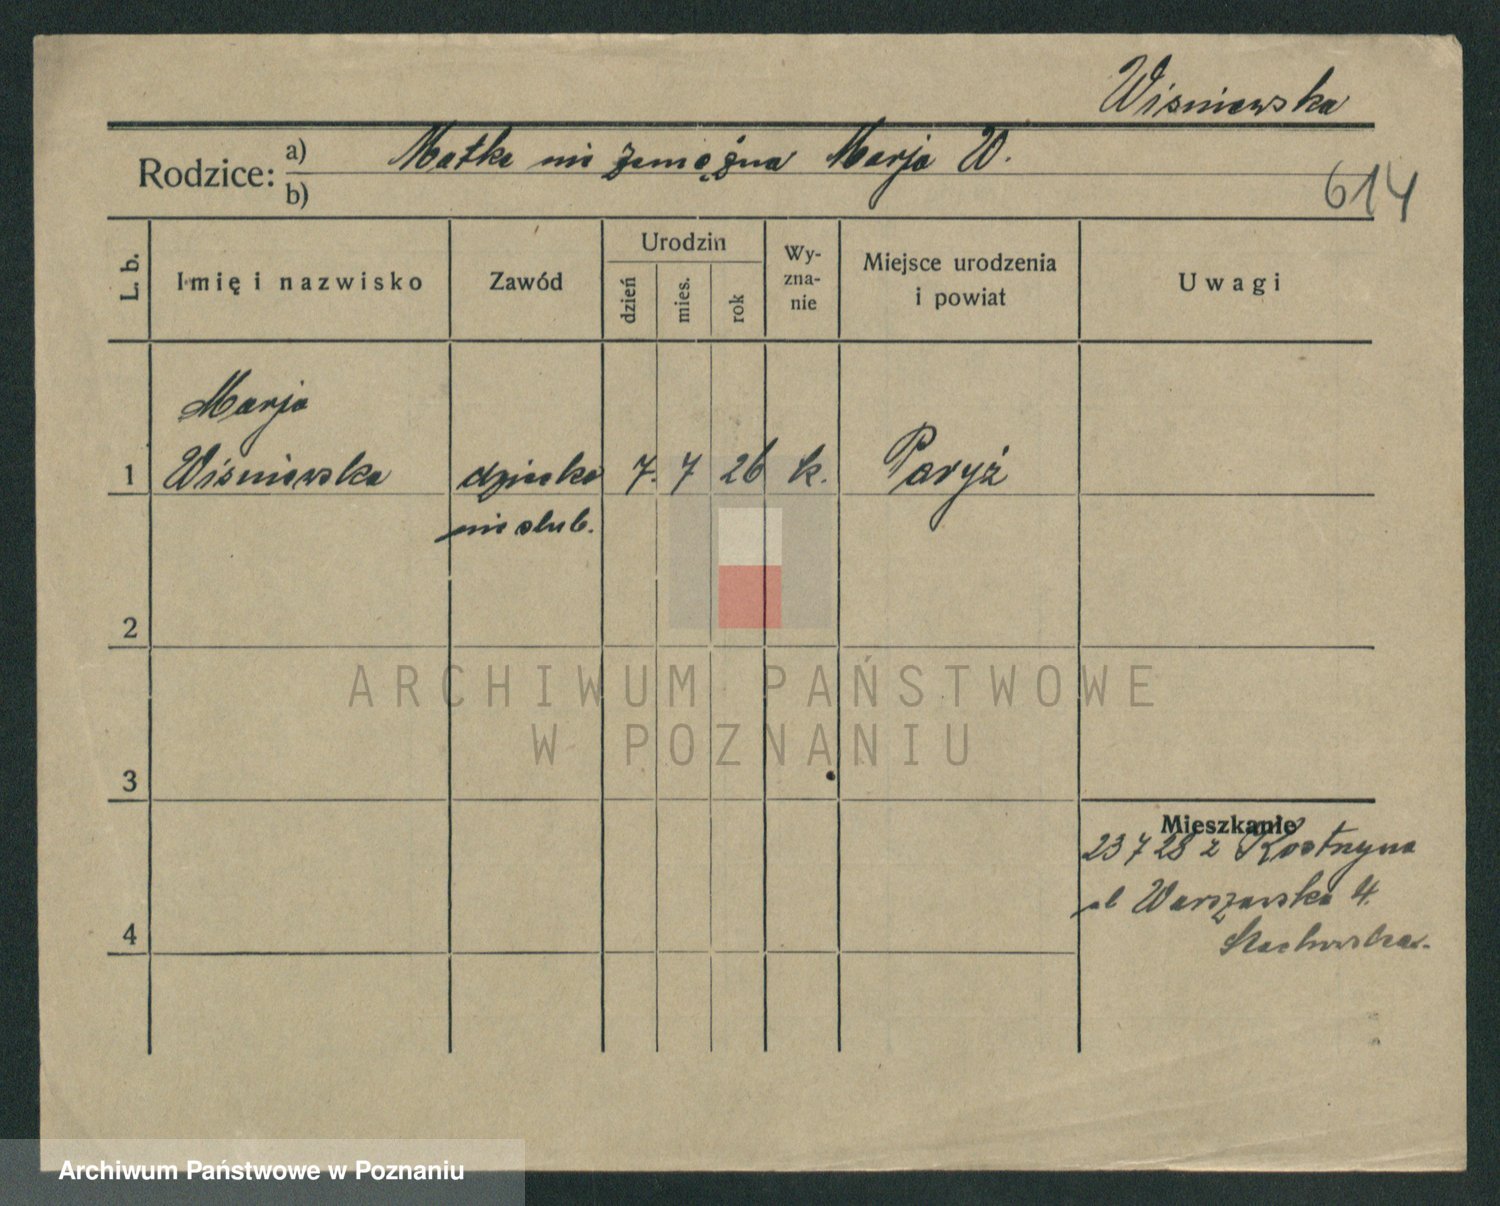 Wiśniewska
Rodzice: a) Matka nie zamężna Marja W.
b)
614
L. b.
Imię i nazwisko
Zawód
Urodzin
dzień
mies.
rok
Wy-
zna-
nie
Miejsce urodzenia
i powiat
Uwagi
Marja
1 Wiśniewska dziecko 7. 7 26 k. Paryż
nieślub.
2
3
Mieszkanie
23 7 28 z Kostrzyna
ul Warszawska 4.
4
Stachowska.
ARCHIWUM PAŃSTWOWE
W POZNANIU
Archiwum Państwowe w Poznaniu